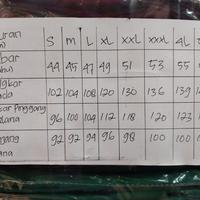 uran S M L XL XXL XXXL 4L
bar 44 45 47 49 51 53 55
gkar 102 104 108 120 130 136 139
sar Pinggang
lana 96 100 104 112 118 120 123
ang 92 92 94 96 98 100 100
ana